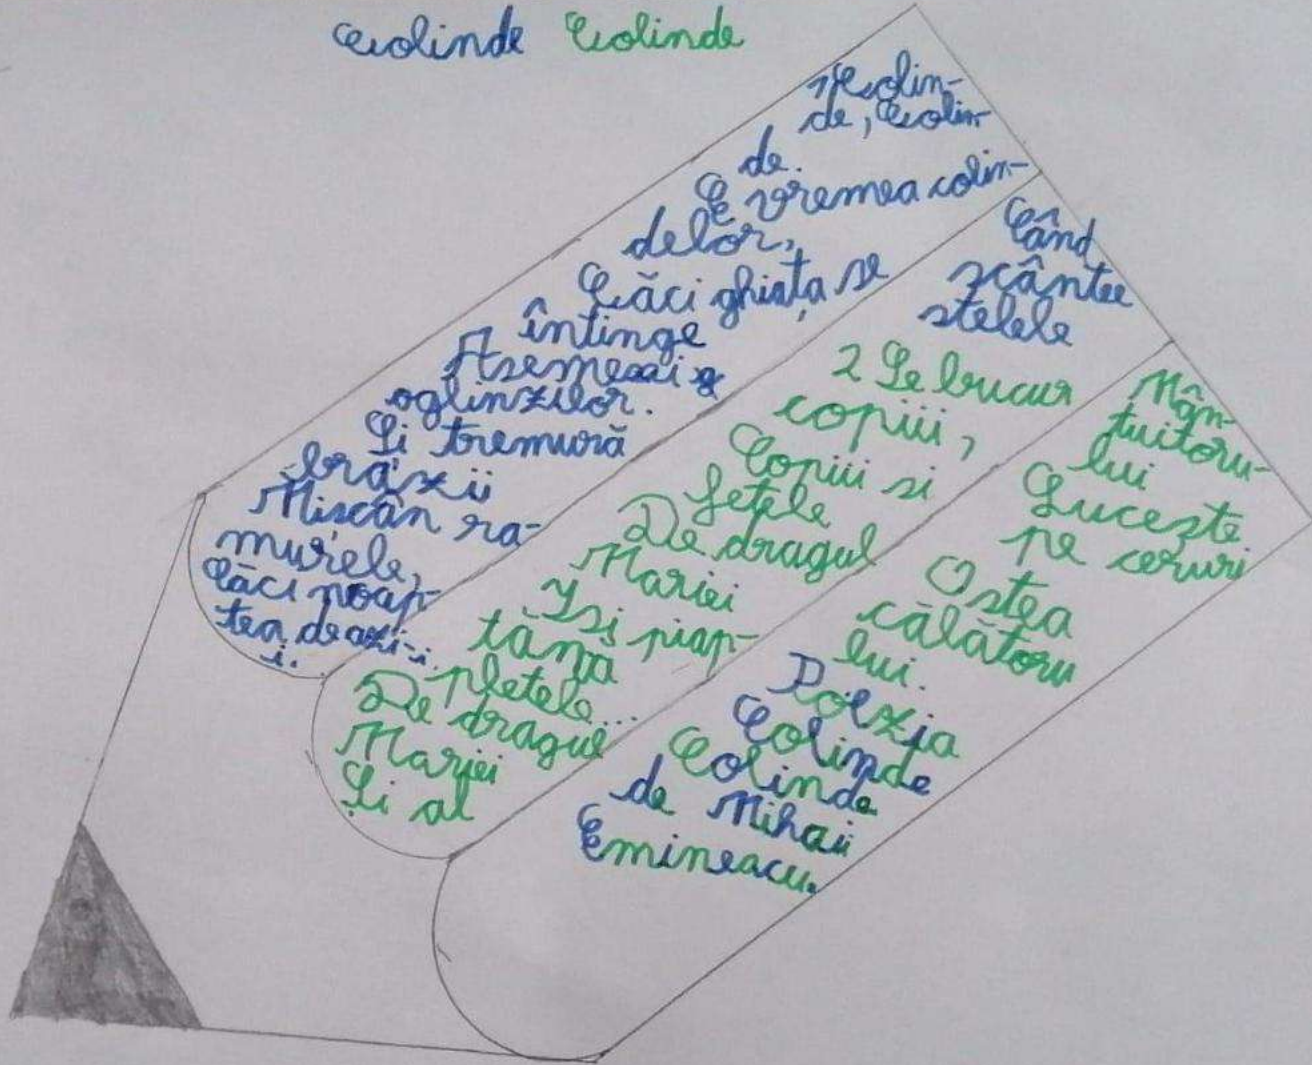 Colinde Colinde
1 Colin-
de, Colin-
de.
E vremea colin-
delor,
Căci ghiața se
întinge
Asemeai
oglinzilor.
Și tremură
brazii
Miscân ra-
murele,
Căci noap-
tea de azi-i.
i.
Când
scântee
stelele
2 Se bucur
copiii,
Copiii si
fetele
De dragul
Mariei
Iși piap-
tănă
pletele...
De dragul
Mariei
Și al
Mân-
tuitoru-
lui
Lucește
pe ceruri
O stea
călătoru
lui.
Poezia
Colinde
Colinde
de Mihaii
Emineacu.